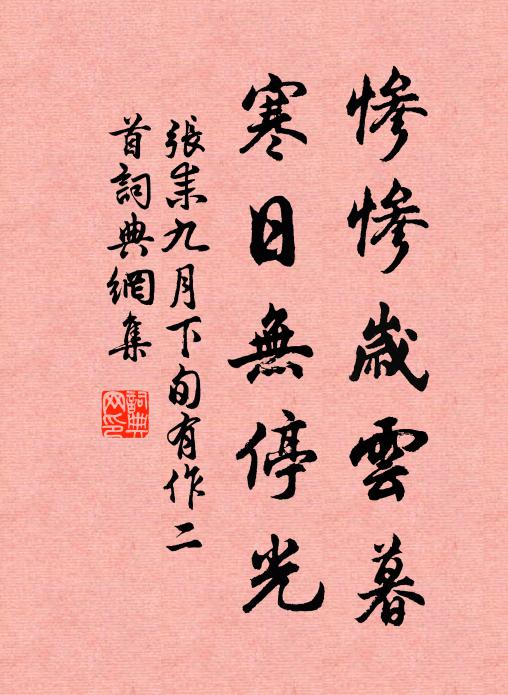 慘慘歲雲暮
寒日無停光
張耒九月下旬有作二
首詞典網集
詞典
网印